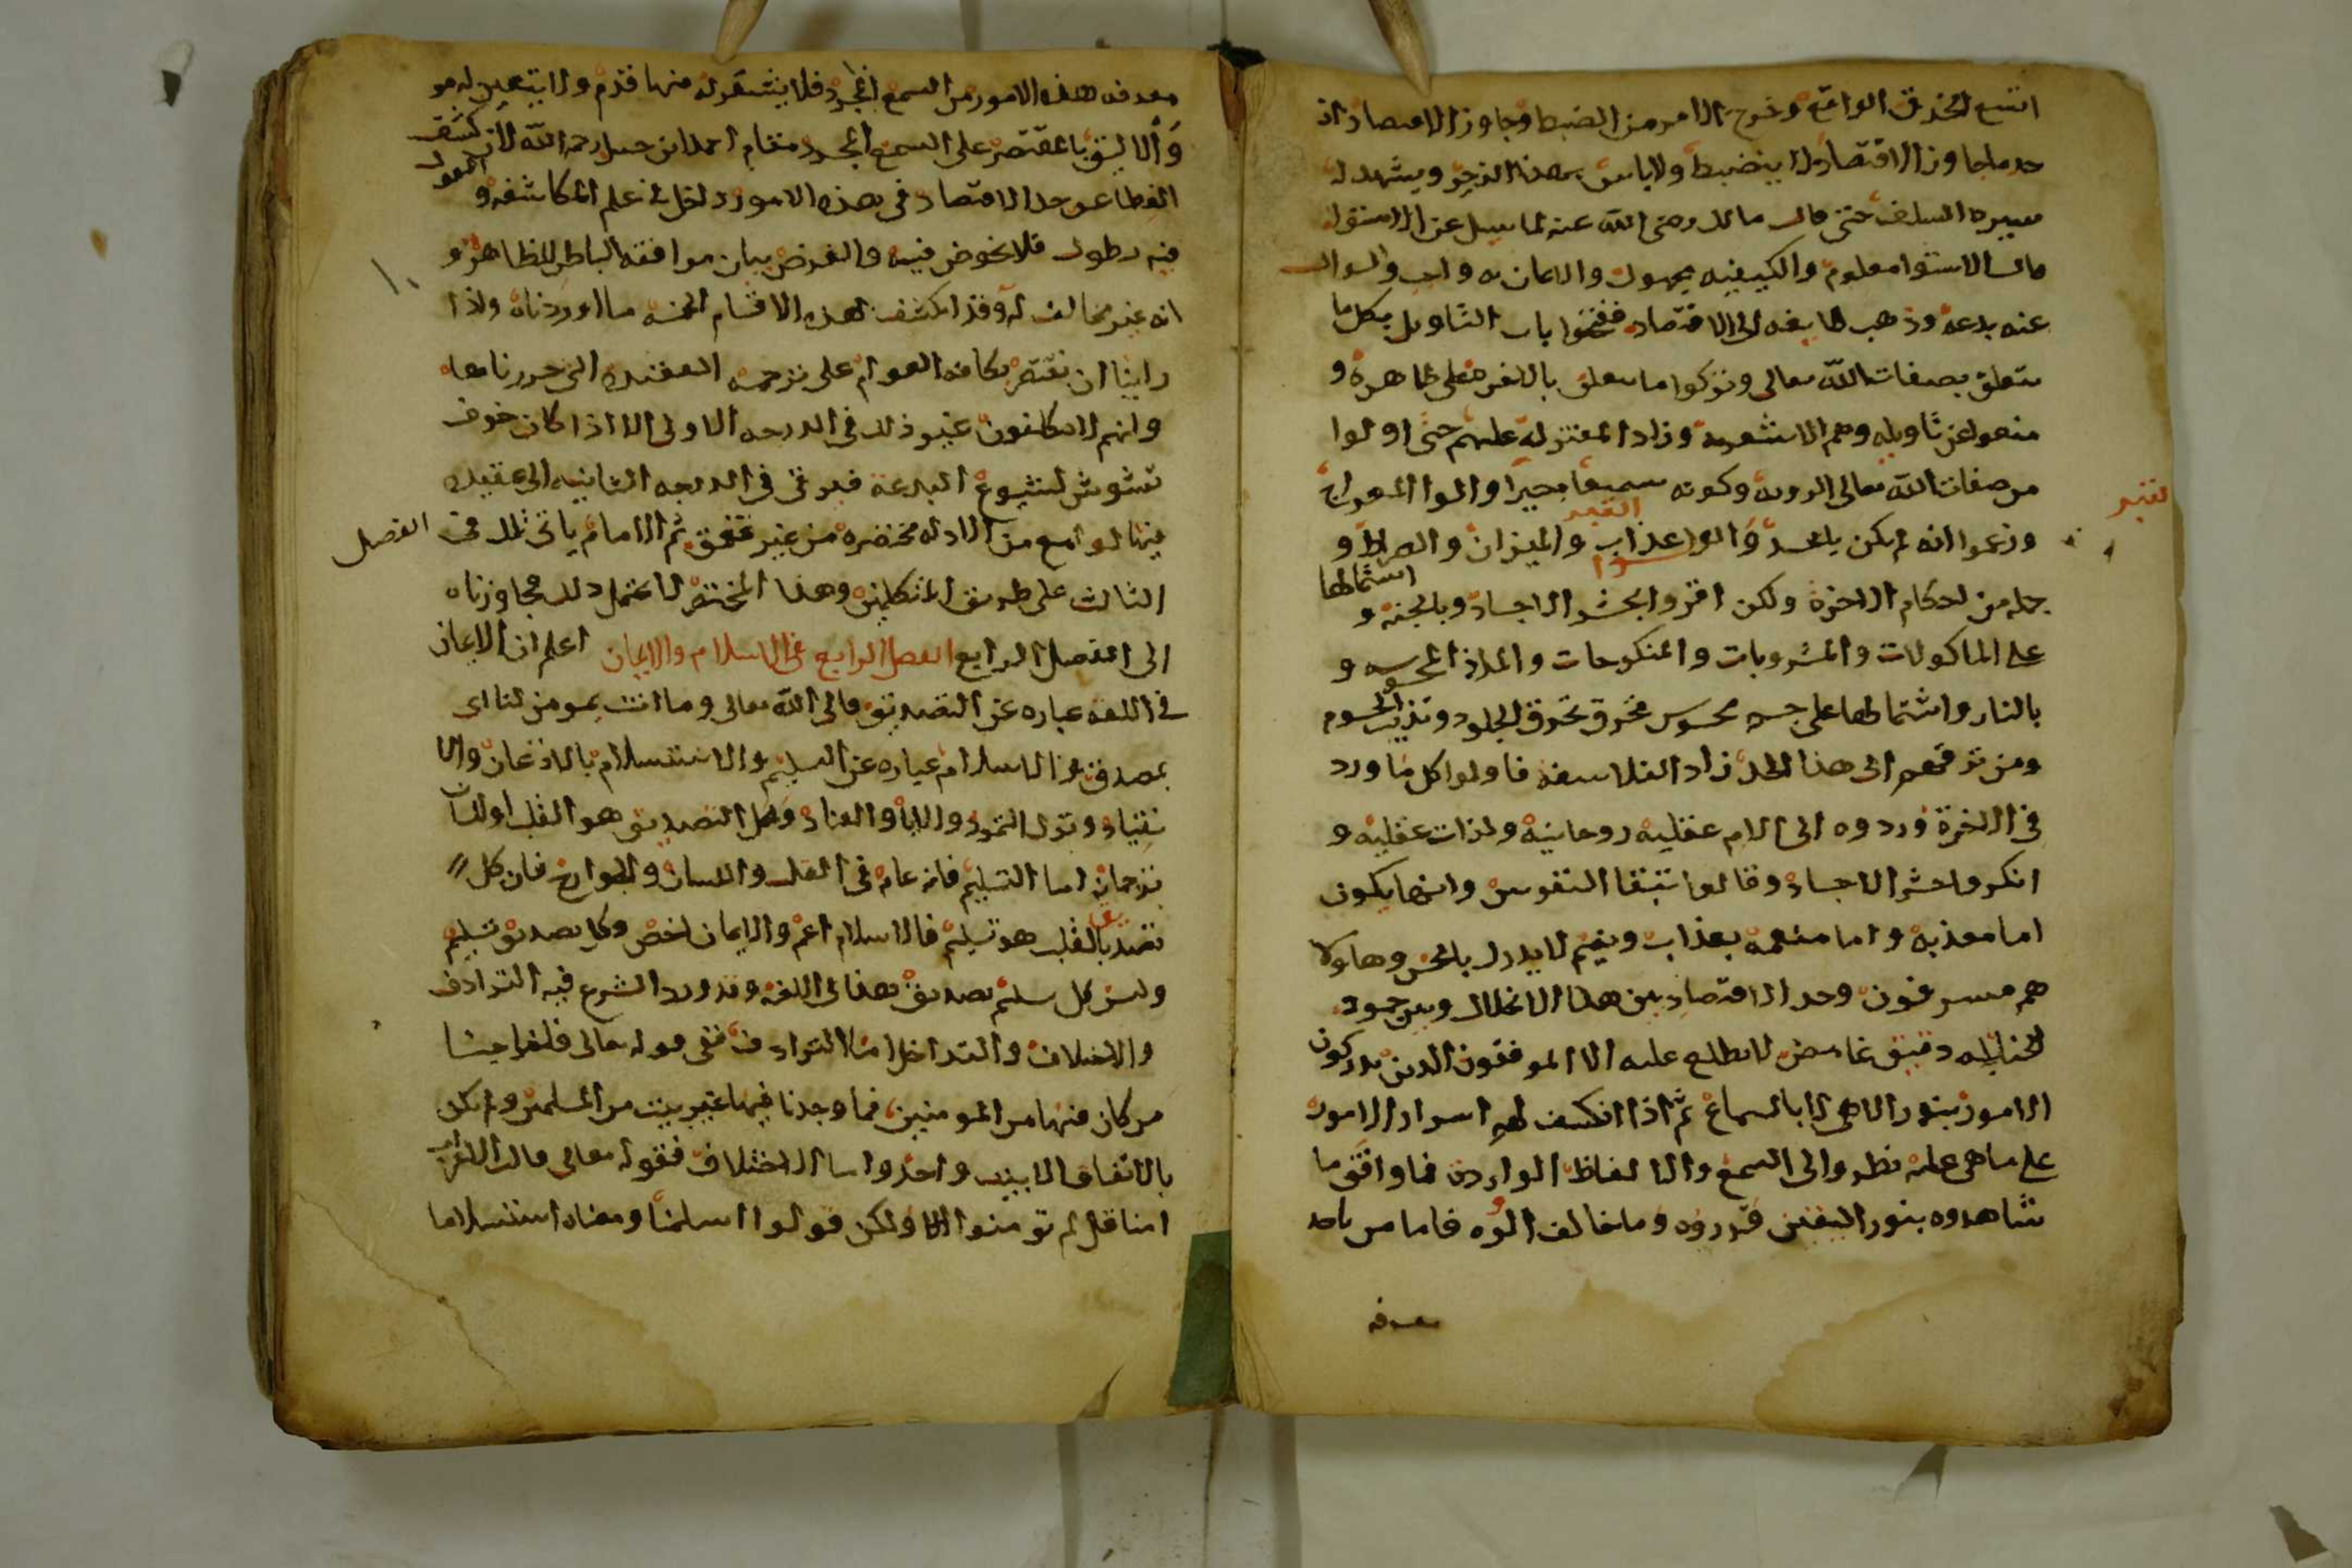 اتسع الخرق الراقع وخرج الامر من الضبط وجاوز الاقتصاد اذ
حد ما جاوز الاقتصاد لا ينضبط ولا باس بهذا الزجر ويشهد له
سيره السلف حتى قال مالك رضى الله عنه لما سيل عن الاستوا
قال الاستوا معلوم والكيفيه مجهوله والايمان به واجب والسوال
عنه بدعه وذهب طايفه الى الاقتصاد ففتحوا باب التاويل بكل ما
يتعلق بصفات الله تعالى وتركوا ما يتعلق بالاخره على ظاهره و
منعوا عن تاويله وهم الاشعريه وزاد المعتزله عليهم حتى اولوا
من صفات الله تعالى الرويه وكونه سميعا بصيرا واولوا المعراج
وزعموا انه لم يكن بالجسد واولوا عذاب القبر والميزان والصراط و
جمله من احكام الاخرة ولكن اقروا بحشر الاجساد وبالجنه و اشتمالها
على الماكولات والمشروبات والمنكوحات والملاذ المحسوسه و
بالنار واشتمالها على جسم محسوس محرق تحرق الجلود وتذيب الشحوم
ومن ترقيهم الى هذا الحد زاد الفلاسفه فاولوا كل ما ورد
فى الاخرة وردوه الى الام عقليه روحانيه ولذات عقليه و
انكروا حشر الاجساد وقالوا تبقا النفوس وانها يكون
اما معذبه واما منعمه بعذاب ونعيم لا يدرك بالحس وهاولا
هم مسرفون وحد الاقتصاد بين هذا الانحلال وبين جمود
الحنابله دقيق غامض لا يطلع عليه الا الموفقون الذين يدركون
الامور بنور الاهى لا بالسماع ثم اذا انكشف لهم اسرار الامور
على ما هى عليه نظروا الى السمع والالفاظ الوارده فما وافق ما
شاهدوه بنور اليقين قرروه وما خالف اولوه فاما من ياخد
معرفه
معرفه هذه الامور من السمع المجرد فلا يستقر له منها قدم ولا يتعين له مو
والاليق بالمقتصر على السمع المجرد مقام احمد ابن حنبل رحمه الله لان كشف
الغطا عن حد الاقتصاد فى هذه الامور داخل فى علم المكاشفه و القول
فيه يطول فلا نخوض فيه والغرض بيان موافقه الباطن للظاهر و
انه غير مخالف له وقد انكشف بهذه الاقسام الخمسه ما اوردناه واذا
راينا ان نقتصر بكافه العوام على ترجمه العقيده التى حررناها
وانهم لا يكلفون غير ذلك فى الدرجه الاولى الا اذا كان خوف
تشوش لشيوع البدعة فيرقى فى الدرجه الثانيه الى عقيده
فيها لوامع من الادله مختصره من غير تعمق ثم الامام ياتى بذلك فى الفصل
الثالث على طريق المتكلمين وهذا المختصر لا يحتمل ذلك فجاوزناه
الى الفصل الرابع الفصل الرابع فى الاسلام والايمان اعلم ان الايمان
فى اللغه عباره عن التصديق قال الله تعالى وما انت بمومن لنا اى
بمصدق لنا والاسلام عباره عن التسليم والاستسلام بالاذعان والا
نقياد وترك التمرد والابا والعناد ومحل التصديق هو القلب واللسان
ترجمان اما التسليم فانه عام فى القلب واللسان والجوارح فان كل
تصديق بالقلب هو تسليم فالاسلام اعم والايمان اخص وكل تصديق تسليم
وليس كل تسليم تصديق هذا فى اللغه وقد ورد الشرع فيه الترادف
والاختلاف والتداخل اما الترادف ففى قوله تعالى فاخرجنا
من كان فيها من المومنين فما وجدنا فيها غير بيت من المسلمين ولم يكن
بالاتفاق الا بيت واحد واما الاختلاف فقوله تعالى قالت الاعراب
امنا قل لم تومنوا ولكن قولوا اسلمنا ومعناه استسلاما